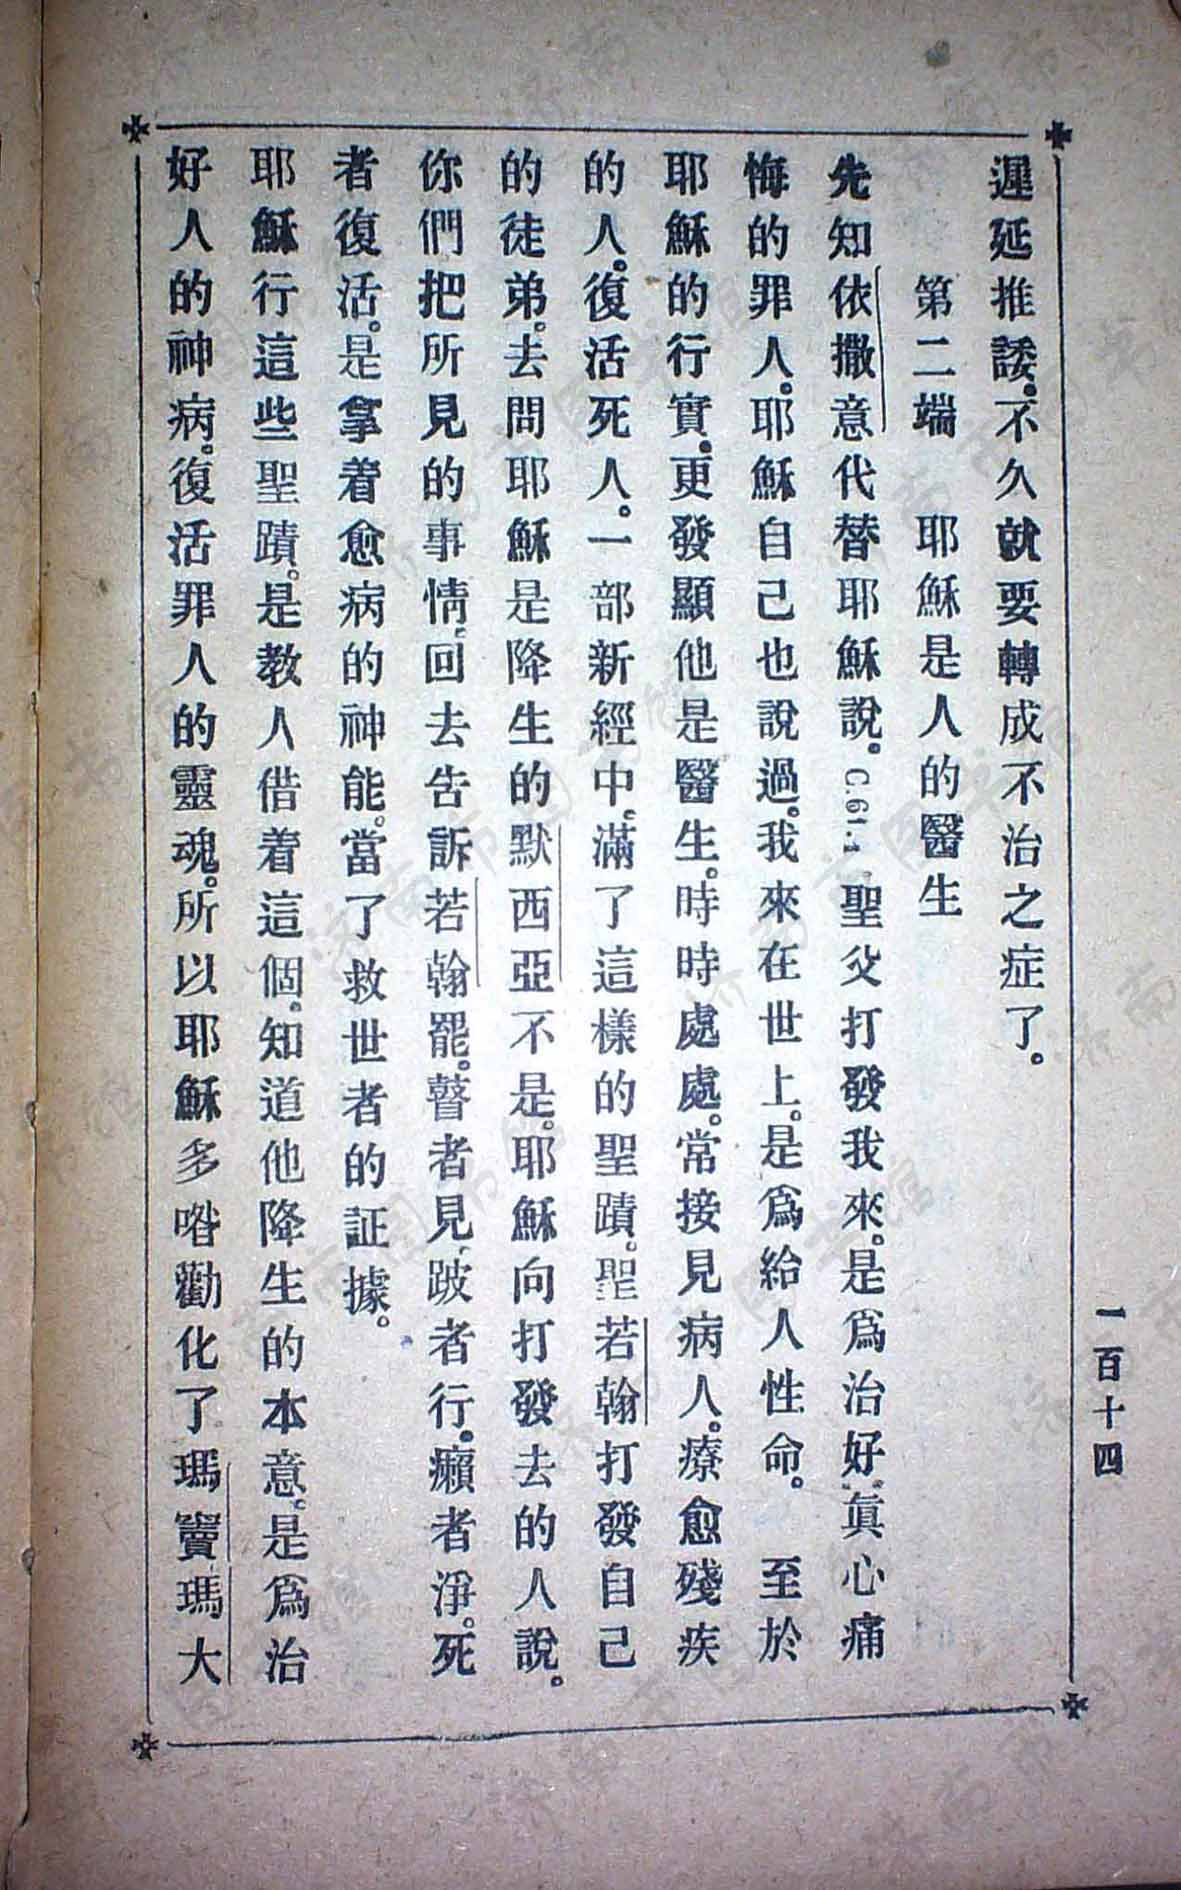 遲延推諉。不久就要轉成不治之症了。
第二端　耶穌是人的醫生
先知依撒意代替耶穌說。C.61.1 聖父打發我來。是爲治好眞心痛
悔的罪人。耶穌自己也說過。我來在世上。是爲給人性命。　至於
耶穌的行實。更發顯他是醫生。時時處處。常接見病人。療愈殘疾
的人。復活死人。一部新經中。滿了這樣的聖蹟。聖若翰打發自己
的徒弟。去問耶穌是降生的默西亞不是。耶穌向打發去的人說。
你們把所見的事情、回去告訴若翰罷。瞽者見、跛者行。癩者淨。死
者復活。是拿着愈病的神能。當了救世者的証據。
耶穌行這些聖蹟。是教人借着這個。知道他降生的本意。是爲治
好人的神病。復活罪人的靈魂。所以耶穌多喒勸化了瑪竇瑪大
一百十四
济南市图书馆